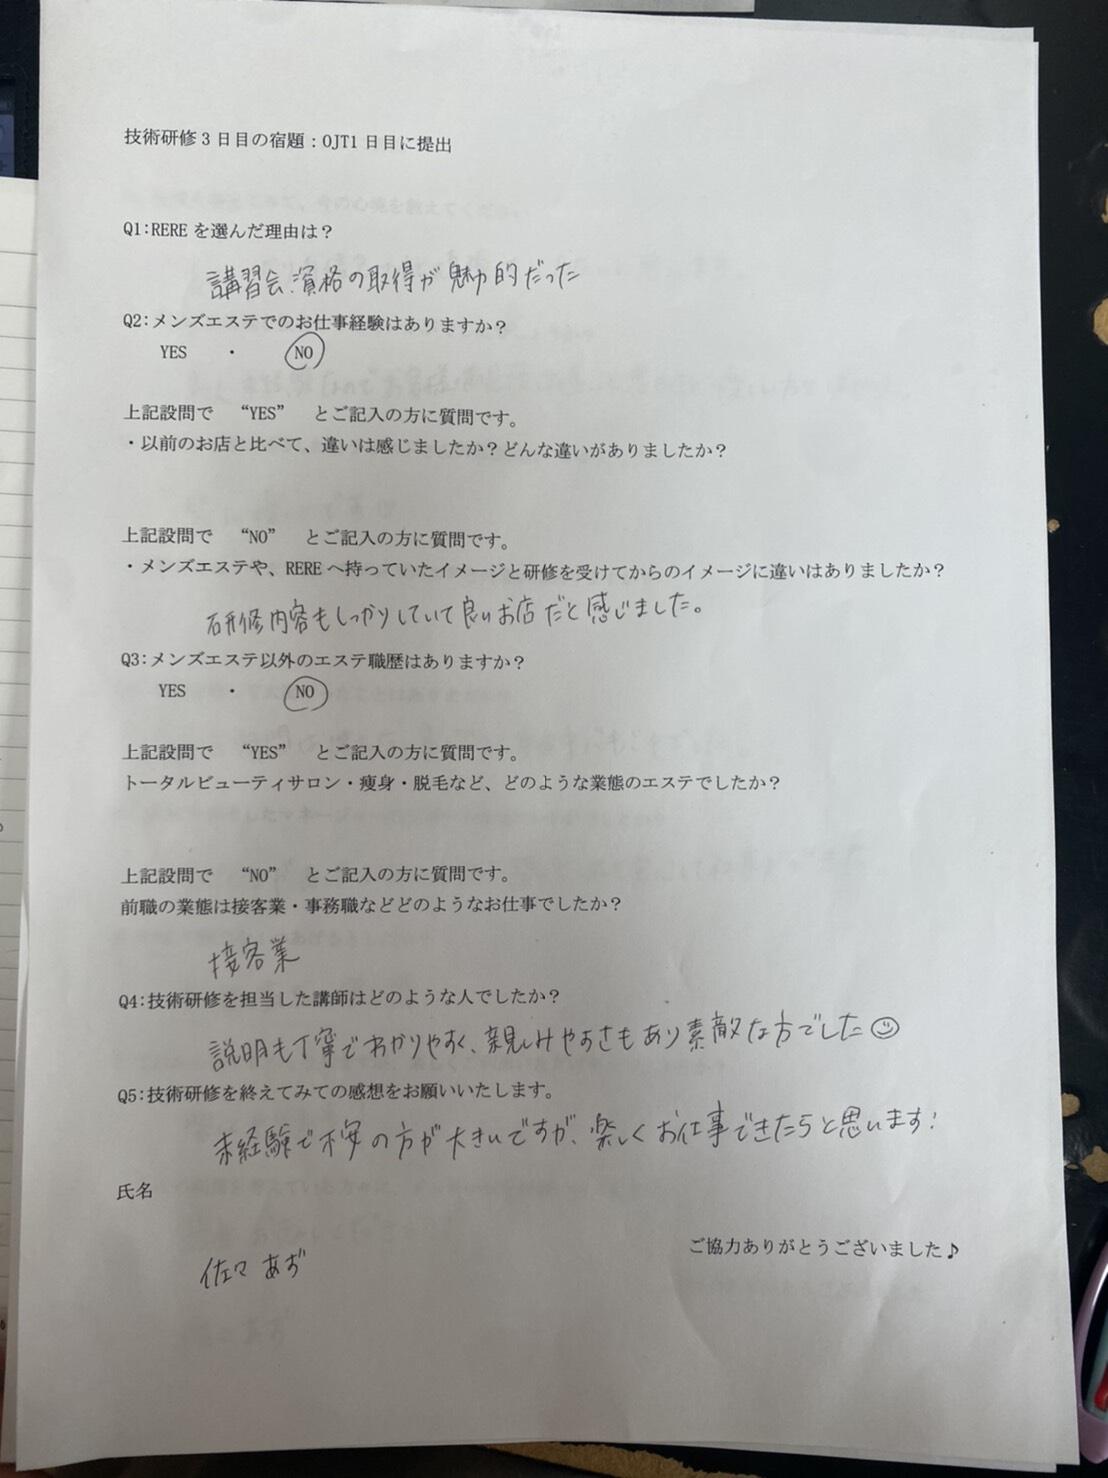 技術研修3日目の宿題：OJT1日目に提出
Q1:REREを選んだ理由は？
講習会、資格の取得が魅力的だった
Q2:メンズエステでのお仕事経験はありますか？
YES ・ NO
上記設問で “YES” とご記入の方に質問です。
・以前のお店と比べて、違いは感じましたか？どんな違いがありましたか？
上記設問で “NO” とご記入の方に質問です。
・メンズエステや、REREへ持っていたイメージと研修を受けてからのイメージに違いはありましたか？
研修内容もしっかりしていて良いお店だと感じました。
Q3:メンズエステ以外のエステ職歴はありますか？
YES ・ NO
上記設問で “YES” とご記入の方に質問です。
トータルビューティサロン・痩身・脱毛など、どのような業態のエステでしたか？
上記設問で “NO” とご記入の方に質問です。
前職の業態は接客業・事務職などどのようなお仕事でしたか？
接客業
Q4:技術研修を担当した講師はどのような人でしたか？
説明も丁寧でわかりやすく、親しみやすさもあり素敵な方でした☺
Q5:技術研修を終えてみての感想をお願いいたします。
未経験で不安の方が大きいですが、楽しくお仕事できたらと思います！
氏名
ご協力ありがとうございました♪
佐々 あず